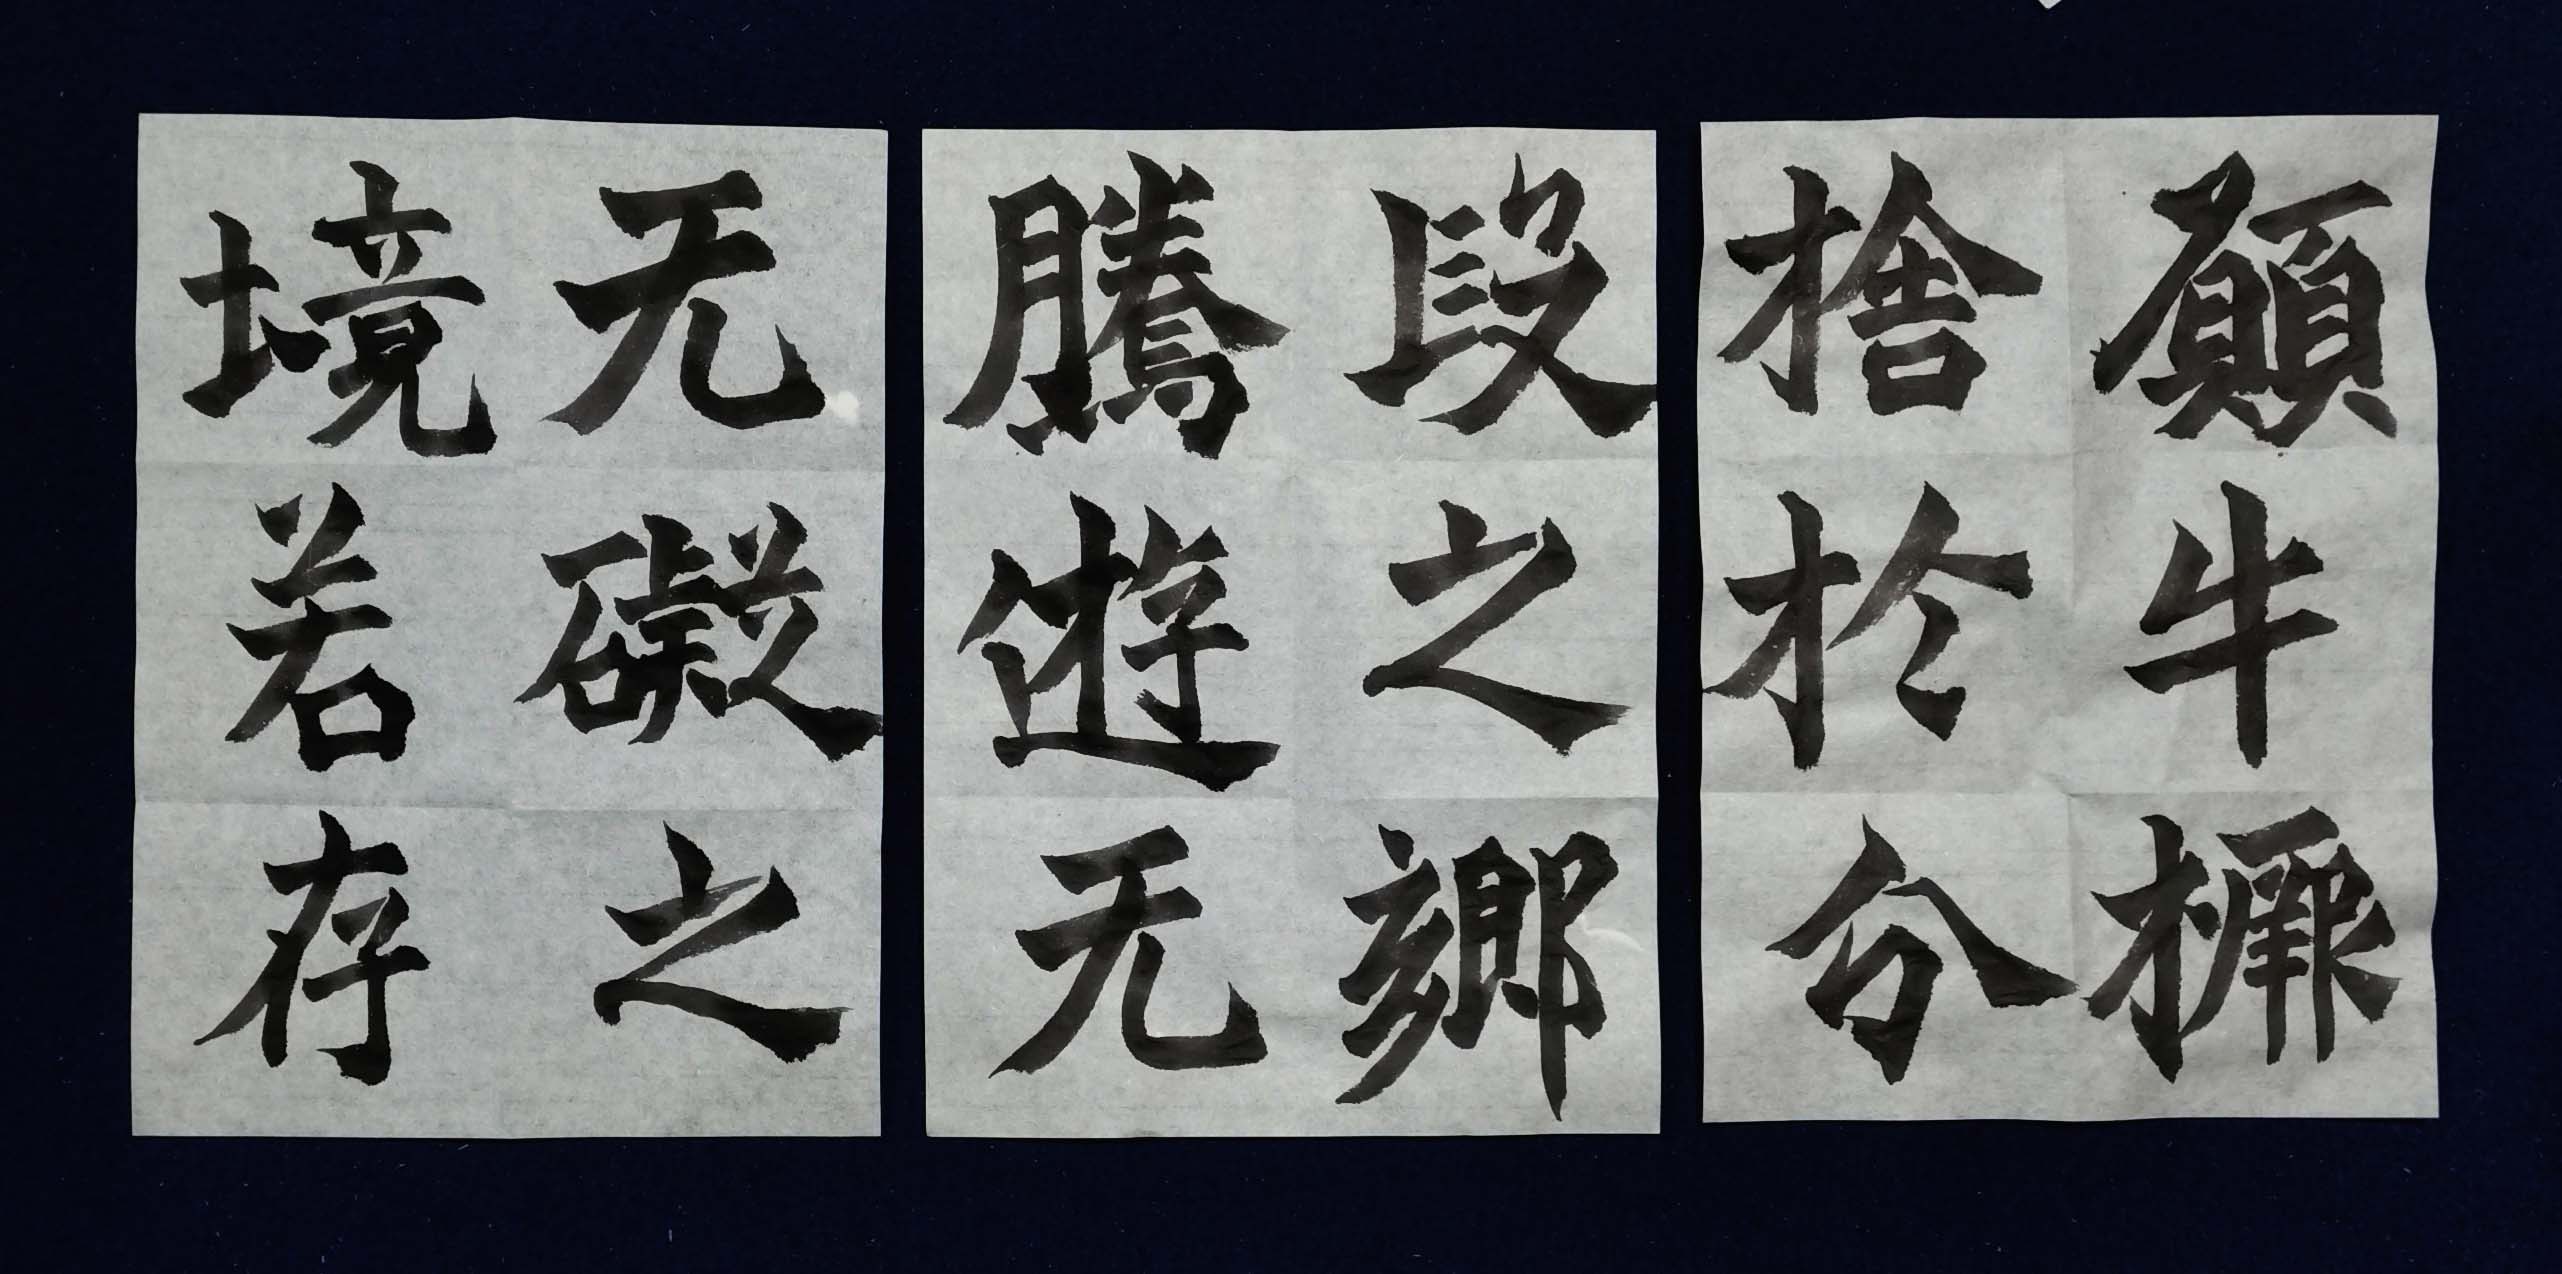 願牛橛
捨扵分
段之鄉
騰遊无
无礙之
境若存